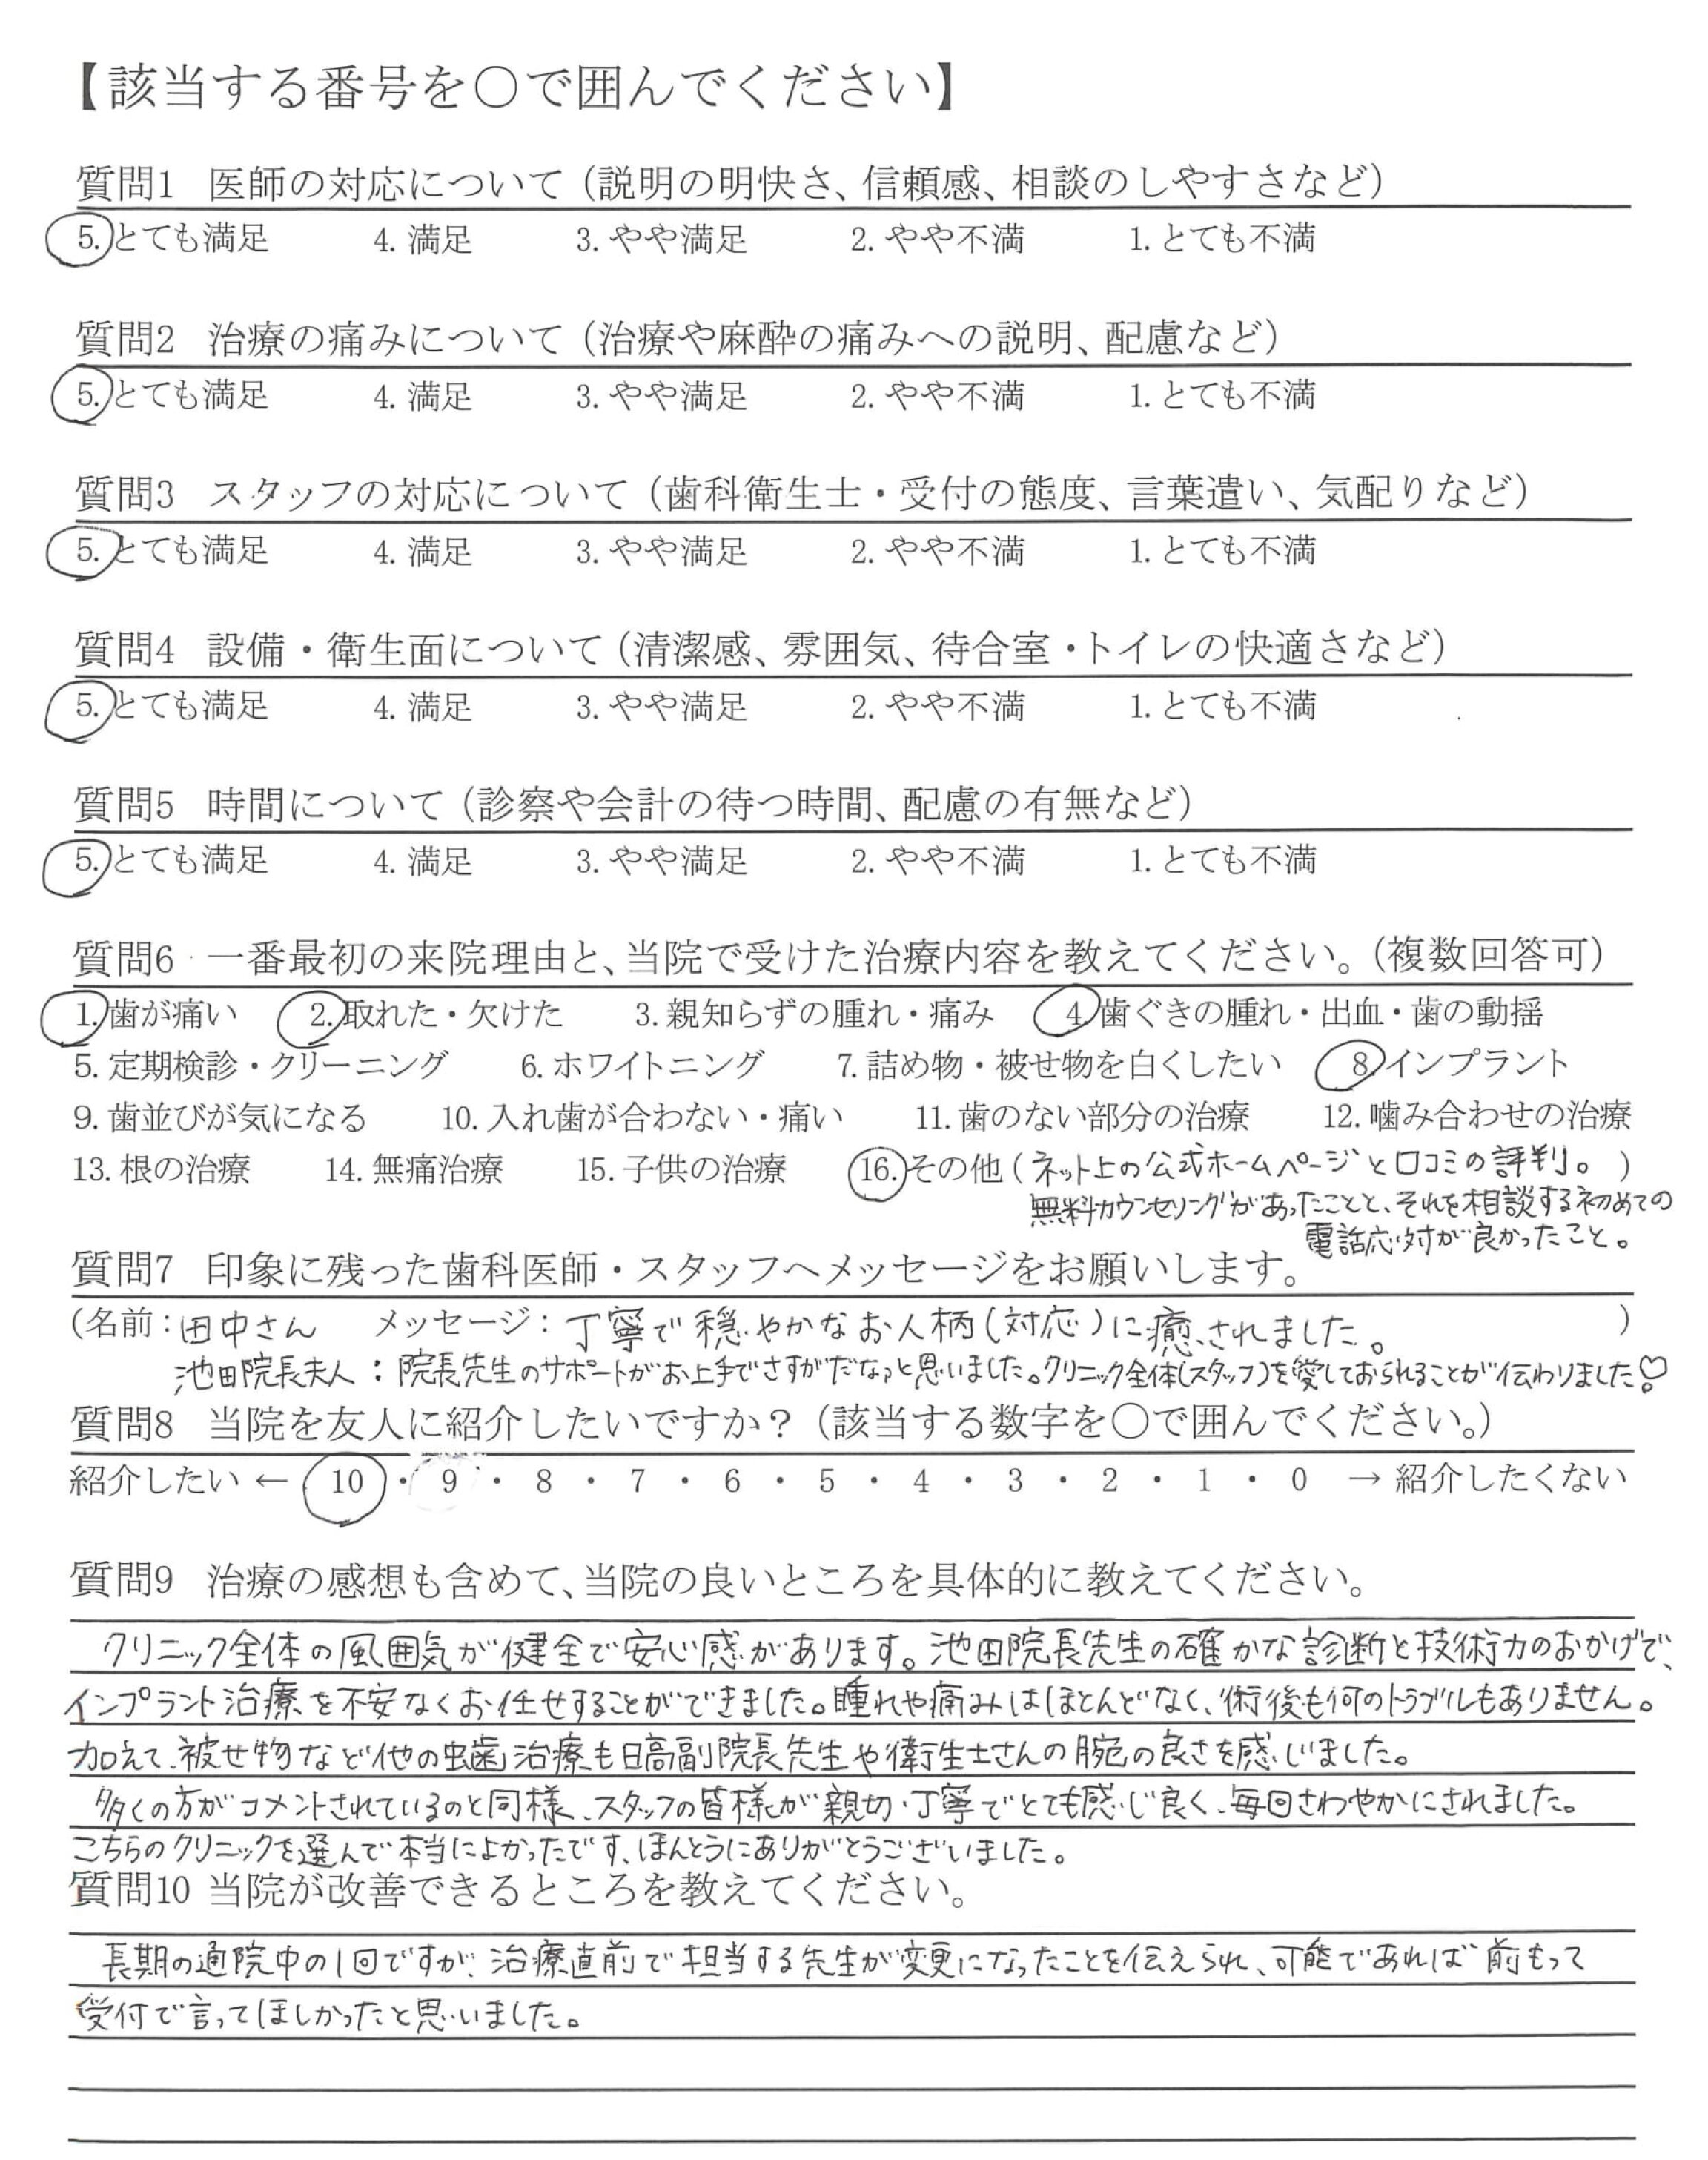 【該当する番号を○で囲んでください】
質問1 医師の対応について（説明の明快さ、信頼感、相談のしやすさなど）
5. とても満足 4. 満足 3. やや満足 2. やや不満 1. とても不満
質問2 治療の痛みについて（治療や麻酔の痛みへの説明、配慮など）
5. とても満足 4. 満足 3. やや満足 2. やや不満 1. とても不満
質問3 スタッフの対応について（歯科衛生士・受付の態度、言葉遣い、気配りなど）
5. とても満足 4. 満足 3. やや満足 2. やや不満 1. とても不満
質問4 設備・衛生面について（清潔感、雰囲気、待合室・トイレの快適さなど）
5. とても満足 4. 満足 3. やや満足 2. やや不満 1. とても不満
質問5 時間について（診察や会計の待つ時間、配慮の有無など）
5. とても満足 4. 満足 3. やや満足 2. やや不満 1. とても不満
質問6 一番最初の来院理由と、当院で受けた治療内容を教えてください。（複数回答可）
1. 歯が痛い 2. 取れた・欠けた 3. 親知らずの腫れ・痛み 4. 歯ぐきの腫れ・出血・歯の動揺
5. 定期検診・クリーニング 6. ホワイトニング 7. 詰め物・被せ物を白くしたい 8. インプラント
9. 歯並びが気になる 10. 入れ歯が合わない・痛い 11. 歯のない部分の治療 12. 噛み合わせの治療
13. 根の治療 14. 無痛治療 15. 子供の治療 16. その他（ネット上の公式ホームページと口コミの評判。）
無料カウンセリングがあったことと、それを相談する初めての
電話応対が良かったこと。
質問7 印象に残った歯科医師・スタッフへメッセージをお願いします。
（名前：田中さん メッセージ：丁寧で穏やかなお人柄（対応）に癒されました。）
池田院長夫人：院長先生のサポートがお上手でさすがだなぁと思いました。クリニック全体（スタッフ）を愛しておられることが伝わりました♡
質問8 当院を友人に紹介したいですか？（該当する数字を○で囲んでください。）
紹介したい ← 10 ・ 9 ・ 8 ・ 7 ・ 6 ・ 5 ・ 4 ・ 3 ・ 2 ・ 1 ・ 0 → 紹介したくない
質問9 治療の感想も含めて、当院の良いところを具体的に教えてください。
クリニック全体の風囲気が健全で安心感があります。池田院長先生の確かな診断と技術力のおかげで、
インプラント治療を不安なくお任せすることができました。腫れや痛みはほとんどなく、術後も何のトラブルもありません。
加えて、被せ物など他の虫歯治療も日高副院長先生や衛生士さんの腕の良さを感じました。
多くの方がコメントされているのと同様、スタッフの皆様が親切・丁寧でとても感じ良く、毎回さわやかにされました。
こちらのクリニックを選んで本当によかったです、ほんとうにありがとうございました。
質問10 当院が改善できるところを教えてください。
長期の通院中の1回ですが、治療直前で担当する先生が変更になったことを伝えられ、可能であれば前もって
受付で言ってほしかったと思いました。